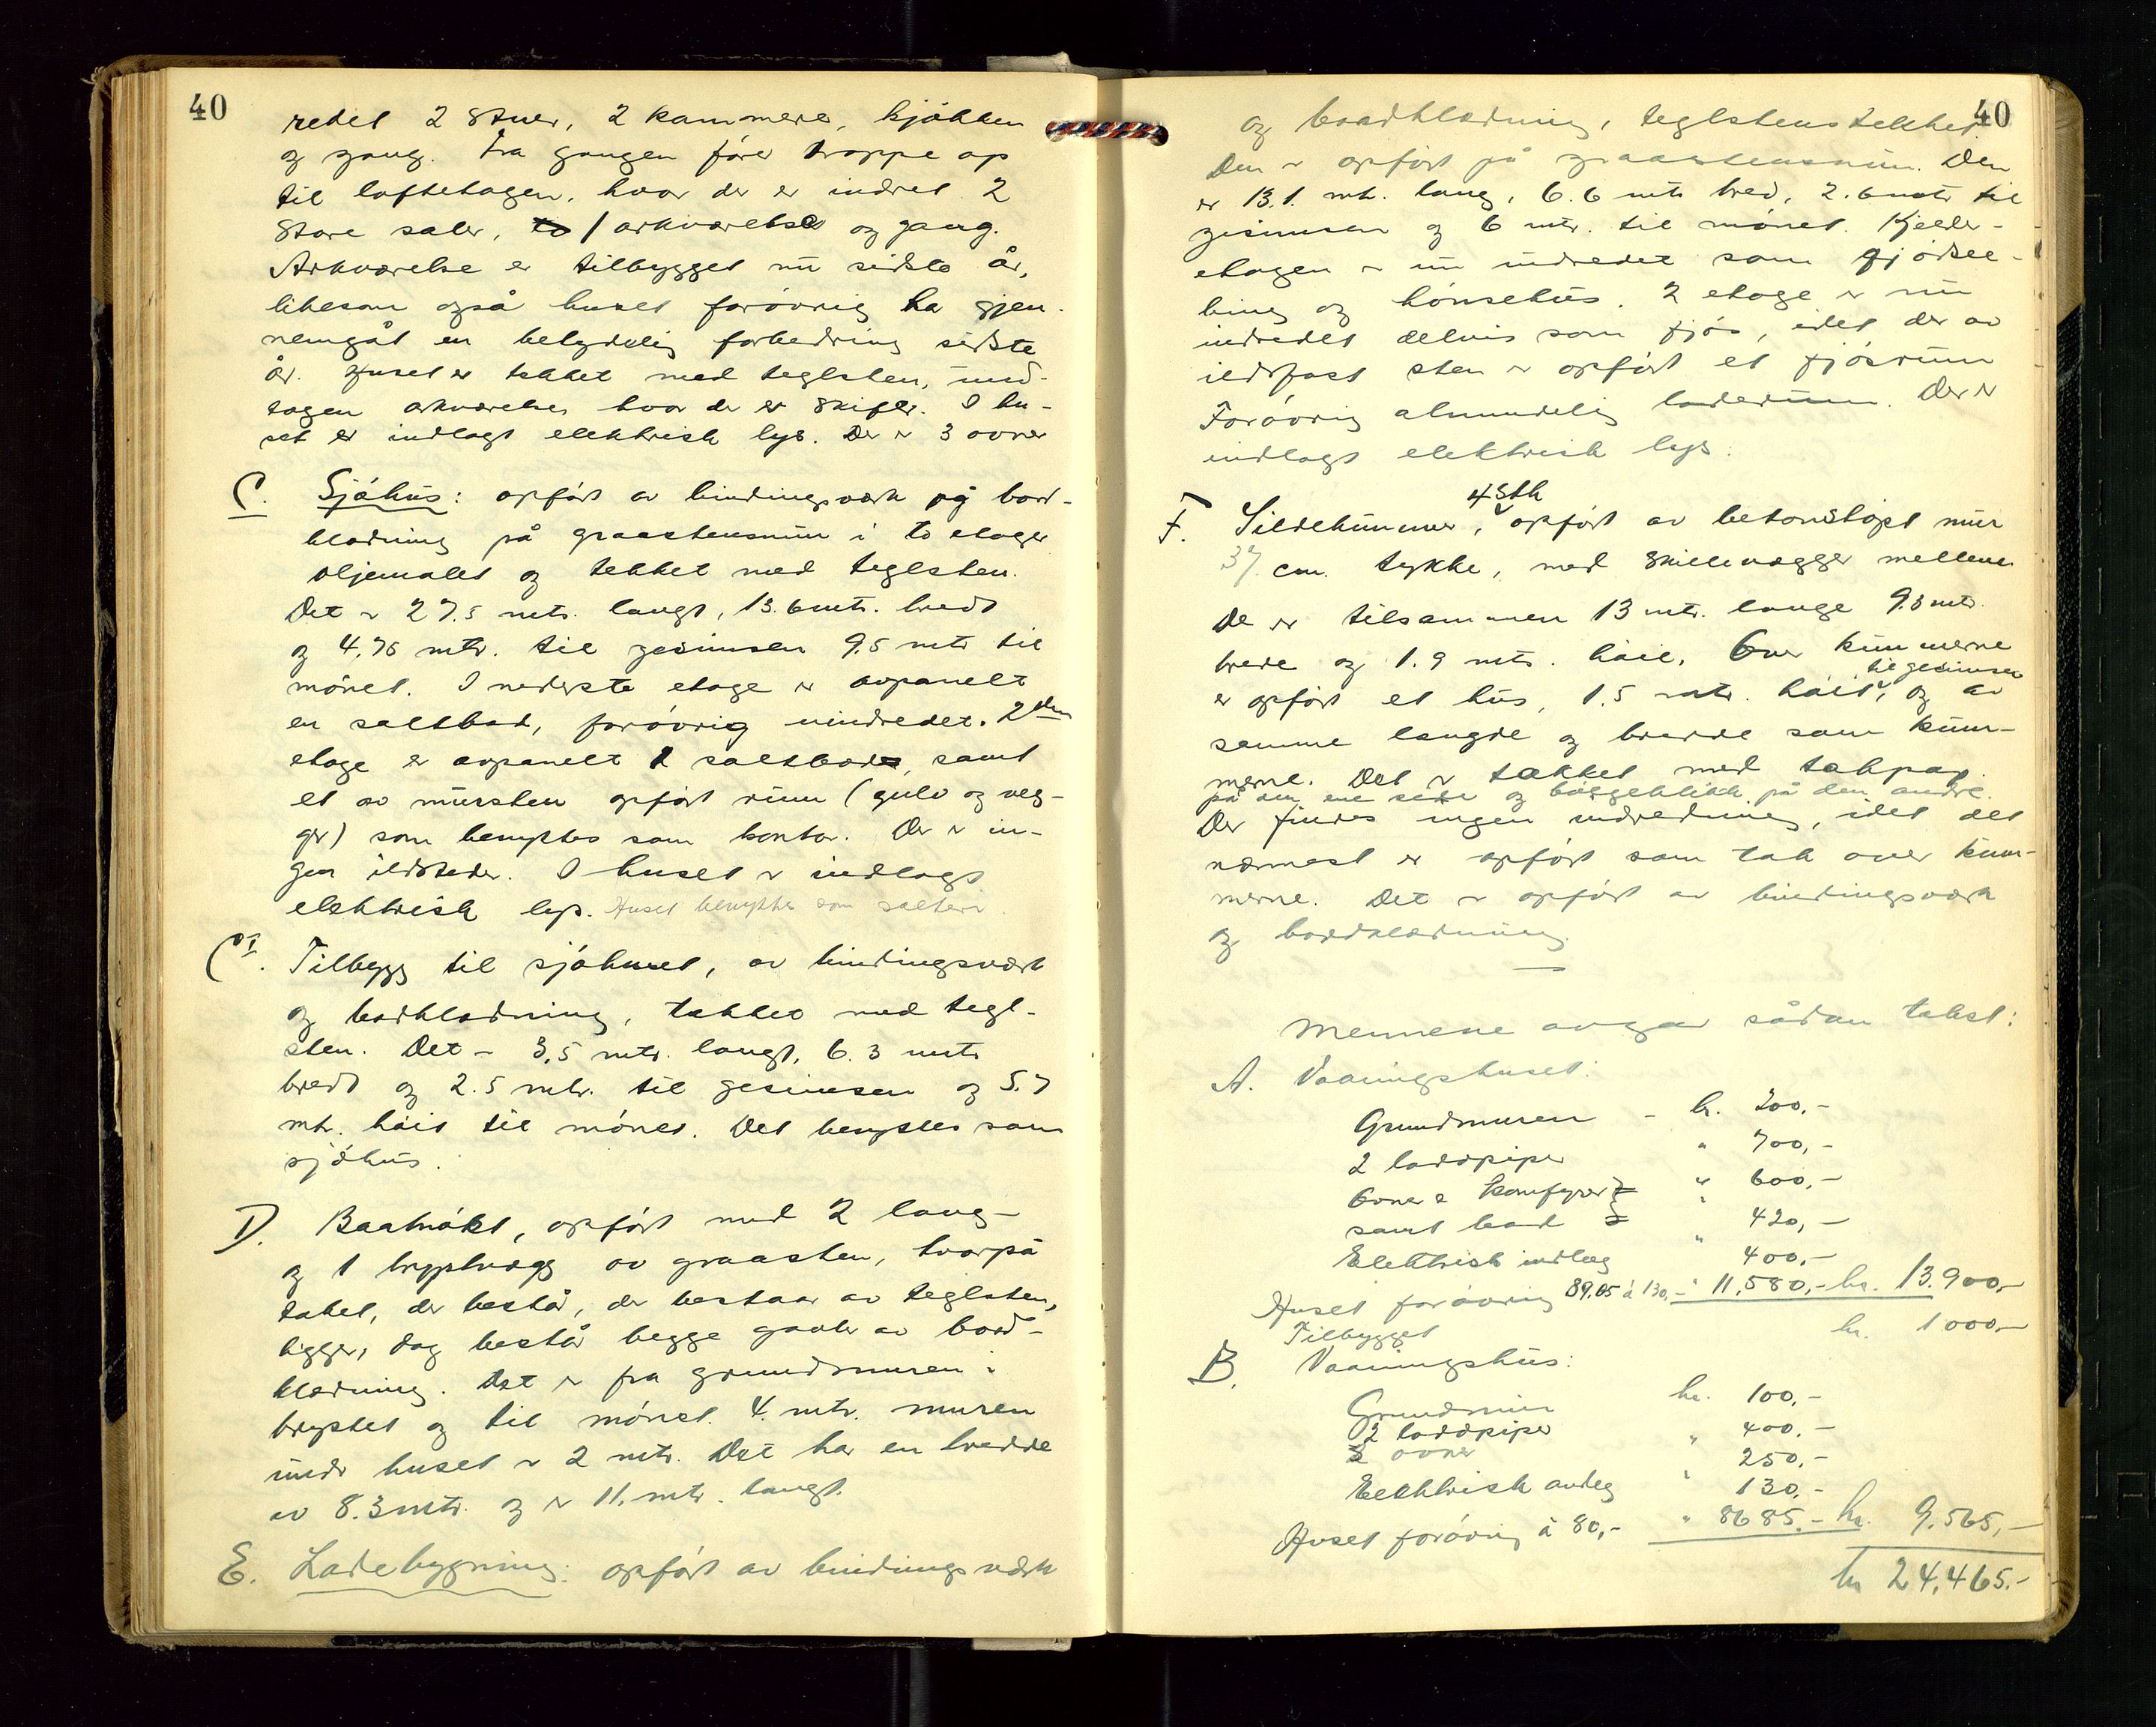 40
redet 2 Stuer, 2 kammere, kjökken
og gang. Fra gangen förer trappe op
til loftetagen, hvor der er indret 2
Store saler, 1 arkværelse og gang.
Arkværelse er tilbygget nu sidste år,
likesom også huset forövrig ha gjen-
nemgåt en betydelig forbedring sidste
år. Huset er tekket med teglsten, und-
tagen arkværelse hvor de er Skifer. I hu-
set er indlagt elektrisk lys. Der er 3 ovner
C. Sjöhus: opfört av bindingsværk og bord-
klædning på graastensmur i to etager
oljemalet og tekket med teglsten.
Det er 27.5 mtr. langt, 13.6 mtr. bredt
og 4.75 mtr. til gesimsen 9.5 mtr til
mönet. I nederste etage er avpanelt
en saltbod, forövrig uindredet. 2den
etage er avpanelt 2 saltboder, samt
et av mursten opfört rum (gulv og væg-
ger) som benyttes som kontor. Der er in-
gen ildsteder. I huset er indlagt
elektrisk lys. Huset benyttes som salteri
C1. Tilbygg til sjöhuset, av bindingsverk
og bordklædning, tekket med tegl-
sten. Det er 3,5 mtr. langt, 6.3 mtr
bredt og 2.5 mtr. til gesimsen og 5.7
mtr. höit til mönet. Det benyttes som
sjöhus.
D. Baatnöst, opfört med 2 lang-
og 1 brystvægg av graasten, hvorpå
taket, der består, der bestaar av teglsten,
ligger, dog består begge gavle av bord-
klædning. Det er fra grundmuren i
brystet og til mönet. 4. mtr. muren
under huset er 2 mtr. Det har en bredde
av 8.3 mtr. og er 11. mtr. langt.
E. Ladebygning: opfört av bindingsværk
40
og bordklædning, teglstenstekket
Den er opfört på graastensmur. Den
er 13.1. mtr. lang, 6.6 mtr bred, 2.6 mtr til
gesimsen og 6 mtr. til mönet. Kjelder-
etagen er nu indredet som gjödsel-
bing og hönsehus. 2 etage er nu
indredet delvis som fjös, idet der av
ildfast sten er opfört et fjösrum
Forövrig almindelig laderum. Der er
indlagt elektrisk lys.
F. Sildekummer, 4 stk opfört av betonstöpt mur
37. cm. tykke, med skillevægger mellem
De er tilsammen 13 mtr. lange 9.3 mtr.
brede og 1.9 mtr. höie. Over kummerne
er opfört et hus, 1.5 mtr. höit til gesimsen, og av
samme længde og bredde som kum-
merne. Det er tækket med takpap
på den ene side og bölgeblikk på den andre.
Der findes ingen indredning, idet det
nærmest er opfört som tak over kum-
merne. Det er opfört av bindingsværk
og bordklædning.
Mennene avgav sådan takst:
A. Vaaningshuset.
Grundmuren - kr. 200,-
2 loddpiper " 700,-
Ovner & Komfyrer " 600,-
samt bad " 420,-
Elektrisk indlæg " 400,-
Huset forövrig 89.05 á 130,- " 11,580,- kr. 13.900,-
Tilbygget kr. 1000,-
B. Vaaningshus:
Grundmur kr. 100,-
2 loddpiper " 400.-
3 ovner 250.-
Elektrisk anlæg " 130.-
Huset forövrig à 80,- " 8685.- kr. 9.565,-
kr 24,465.-